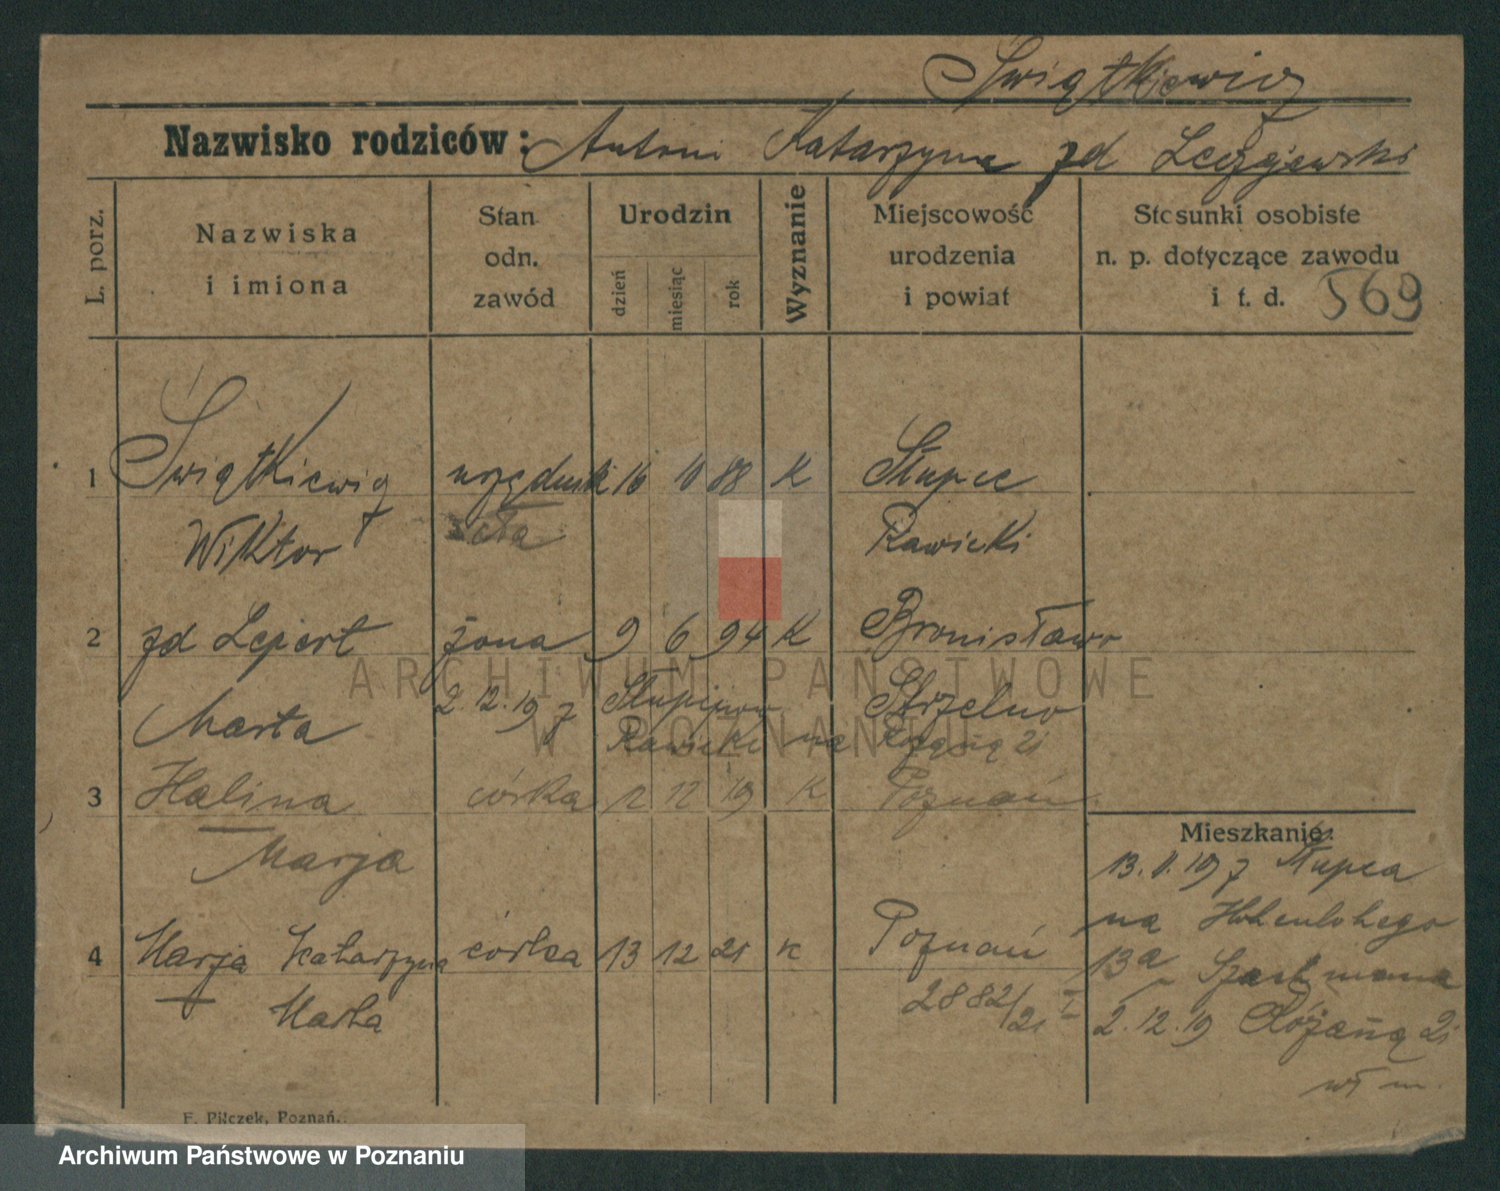 Swiątkiewicz
Nazwisko rodziców: Antoni Katarzyna zd
L. porz.
Nazwiska
i imiona
Stan
odn.
zawód
Urodzin
dzień
miesiąc
rok
Wyznanie
Miejscowość
urodzenia
i powiat
Stosunki osobiste
n. p. dotyczące zawodu
i t. d. 569
1 Świątkiewicz urzędnik 16 10 88 K Słupce
Wiktor Rawicki
2 zd Lepert żona 9 6 94 K Bronisławo
Marta 2.12.19 z Strzelno
Rawicki na Różaną 21
3 Halina córka 2 12 19 K Poznań
Marja
Mieszkanie:
13.V.19 z Słupca
na Hohenlohego
13a
2.12.19 Różaną 21
4 Marja Katarzyna córka 13 12 21 K Poznań
Marta 2882/21 I
F. Pilczek, Poznań.
ARCHIWUM PAŃSTWOWE
W POZNANIU
Archiwum Państwowe w Poznaniu